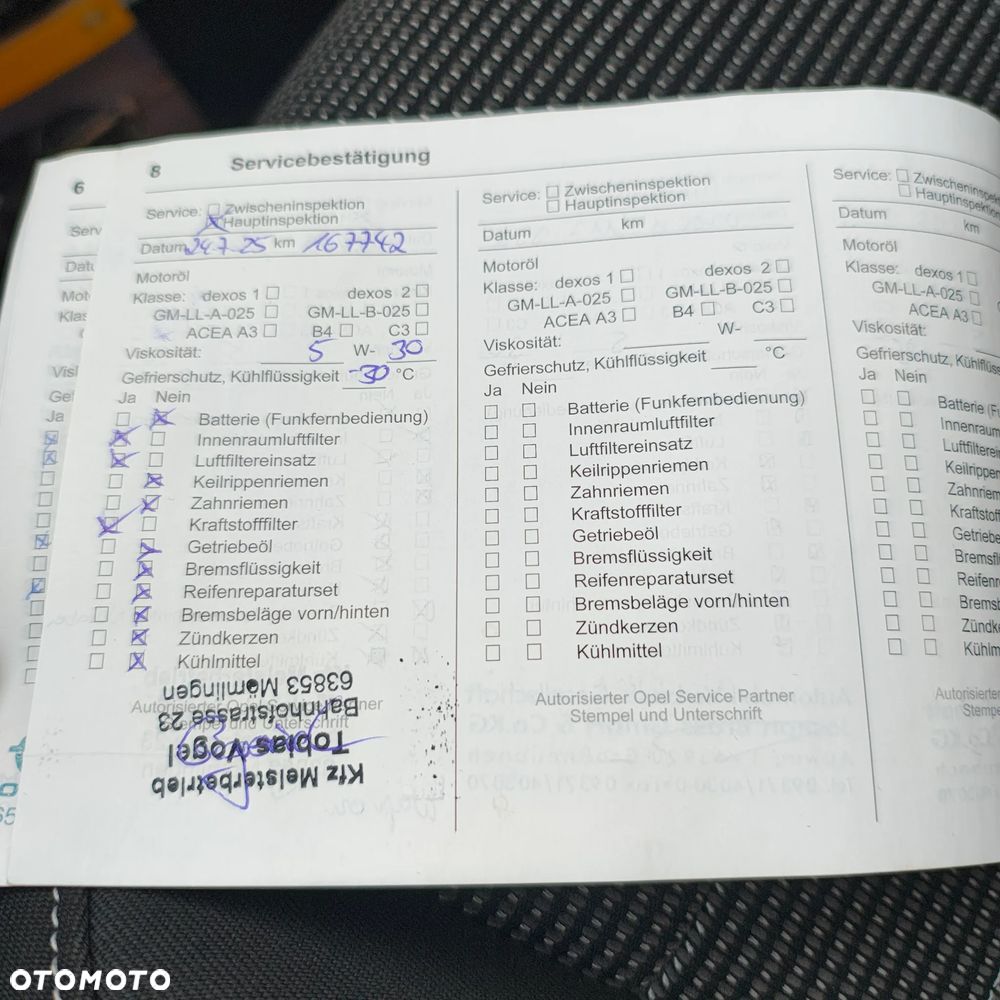 6
8 Servicebestätigung
Service: Zwischeninspektion
Hauptinspektion
Datum 24.7.25 km 167742
Motoröl
Klasse: dexos 1 dexos 2
GM-LL-A-025 GM-LL-B-025
ACEA A3 B4 C3
Viskosität: 5 W-30
Gefrierschutz, Kühlflüssigkeit -30 °C
Ja Nein
Batterie (Funkfernbedienung)
Innenraumluftfilter
Luftfiltereinsatz
Keilrippenriemen
Zahnriemen
Kraftstofffilter
Getriebeöl
Bremsflüssigkeit
Reifenreparaturset
Bremsbeläge vorn/hinten
Zündkerzen
Kühlmittel
Autorisierter Opel Service Partner
Stempel und Unterschrift
Kfz Meisterbetrieb
Tobias Vogel
Bahnhofstrasse 23
63853 Mömlingen
Service: Zwischeninspektion
Hauptinspektion
Datum km
Motoröl
Klasse: dexos 1 dexos 2
GM-LL-A-025 GM-LL-B-025
ACEA A3 B4 C3
Viskosität: W-
Gefrierschutz, Kühlflüssigkeit °C
Ja Nein
Batterie (Funkfernbedienung)
Innenraumluftfilter
Luftfiltereinsatz
Keilrippenriemen
Zahnriemen
Kraftstofffilter
Getriebeöl
Bremsflüssigkeit
Reifenreparaturset
Bremsbeläge vorn/hinten
Zündkerzen
Kühlmittel
Autorisierter Opel Service Partner
Stempel und Unterschrift
Service: Zwischeninspek
Hauptinspekti
Datum km
Motoröl
Klasse: dexos 1
GM-LL-A-025
ACEA A3
Viskosität:
Gefrierschutz, Kühlflüss
Ja Nein
Batterie (F
Innenraum
Luftfilterei
Keilrippe
Zahnriem
Kraftstoff
Getriebe
Bremsfl
Reifen
Bremsb
Zündk
Kühlm
Autorisierte
Stempe
OTOMOTO